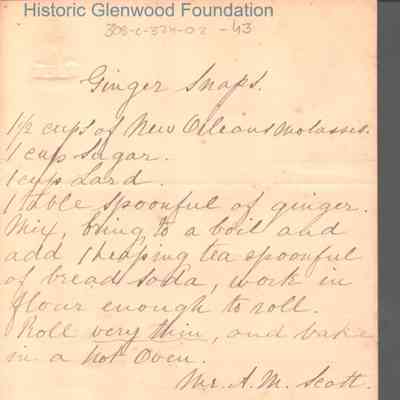 Historic Glenwood Foundation
308-C-324-02 -43
Ginger Snaps.
1 1/2 cups of New Orleans molasses.
1 cup Sugar.
1 cup Lard.
1 table spoonful of ginger.
Mix, bring to a boil and
add 1 heaping tea spoonful
of bread soda, work in
flour enough to roll.
Roll very thin, and bake
in a hot oven.
Mr. A. M. Scott.